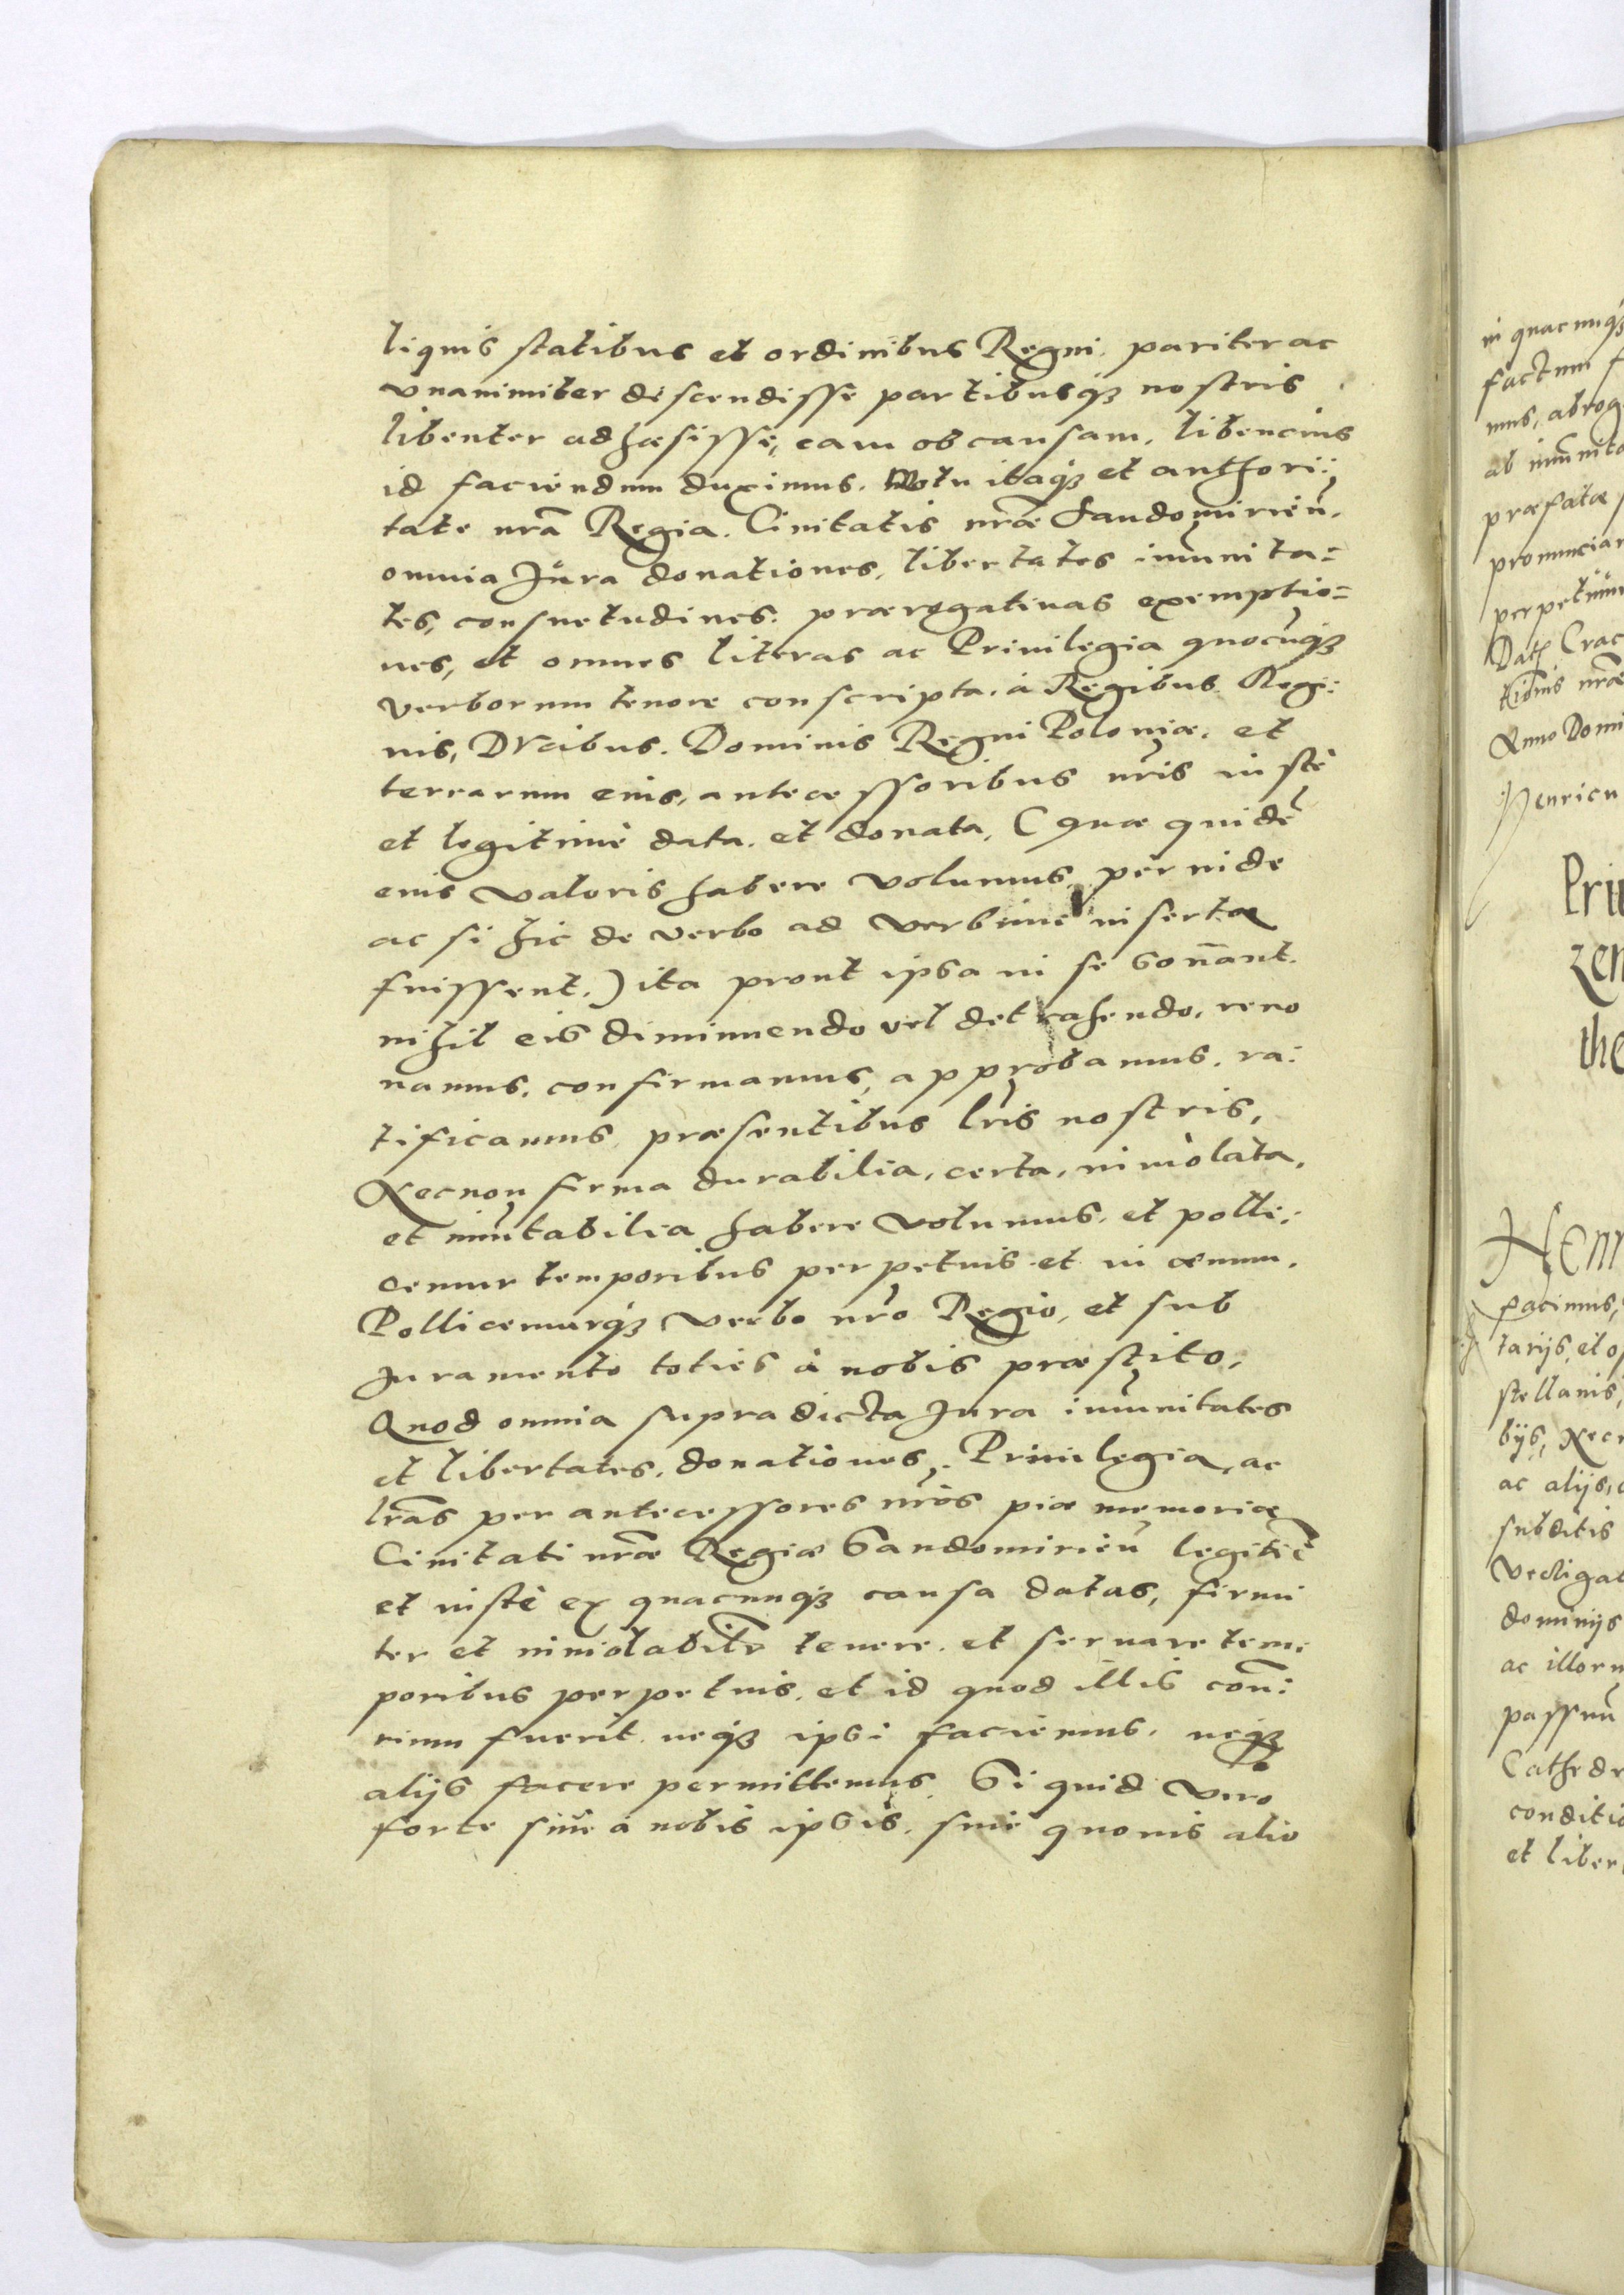 liquis statibus et ordinibus Regni, pariter ac
vnanimiter descendisse partibusq3 nostris
libenter adhæsisse, eam ob causam, libencius
id faciendum duximus. Motu itaq3 et authori:
tate nrã Regia. Ciuitatis nræ Sandomirień.
omnia Jura donationes, libertates imunita=
tes, consuetudines, prærogatiuas exemptio=
nes, et omnes literas ac Priuilegia quocuq3
verborum tenore conscripta, à Regibus Regi:
nis, Dvcibus. Dominis Regni Poloniæ. et
terrarum eius, antecessoribus nris iustè
et legitimè data, et donata, (quæ quidẽ
eius valoris habere volumus perinde
ac si hic de verbo ad verbum inserta
fuissent.) ita prout ipsa in se sonãnt.
nihil eis diminuendo vel detrahendo, reno
uamus, confirmamus, approbamus, ra:
tificamus, præsentibus lris nostris,
Necnon firma durabilia, certa, inuiolata,
et imutabilia habere volumus, et polli:
cemur temporibus perpetuis et in æuum.
Pollicemurq3 verbo nro Regio, et sub
Juramento toties à nobis præstito,
Quod omnia supradicta Jura imunitates
et libertates, donationes, Priuilegia, ac
lrãs per antecessores nros piæ memoriæ
Ciuitati nræ Regiæ Sandomirień legitiè
et iustè ex quacunq3 causa datas, firmi
ter et inuiolabilr tenere et seruare tem:
poribus perpetuis, et id quod illis con:
rium fuerit neq3 ipsi faciemus, neq3
alijs facere permittemus. Si quid vero
forte siue à nobis ipsis, siue quouis alio
in quacunq3
factum
mus, abrog
ab imunita
præfatæ
pronunciar
perpetuum
Dat Crac
tionis nræ
Anno Domi
Henricu
Pri
zen
the
Henr
facimus,
tarijs, et o
stellanis,
bijs, Nec
ac alijs,
subditis
Vectigal
dominijs
ac illoru
passuu
Cathedr
conditio
et liber